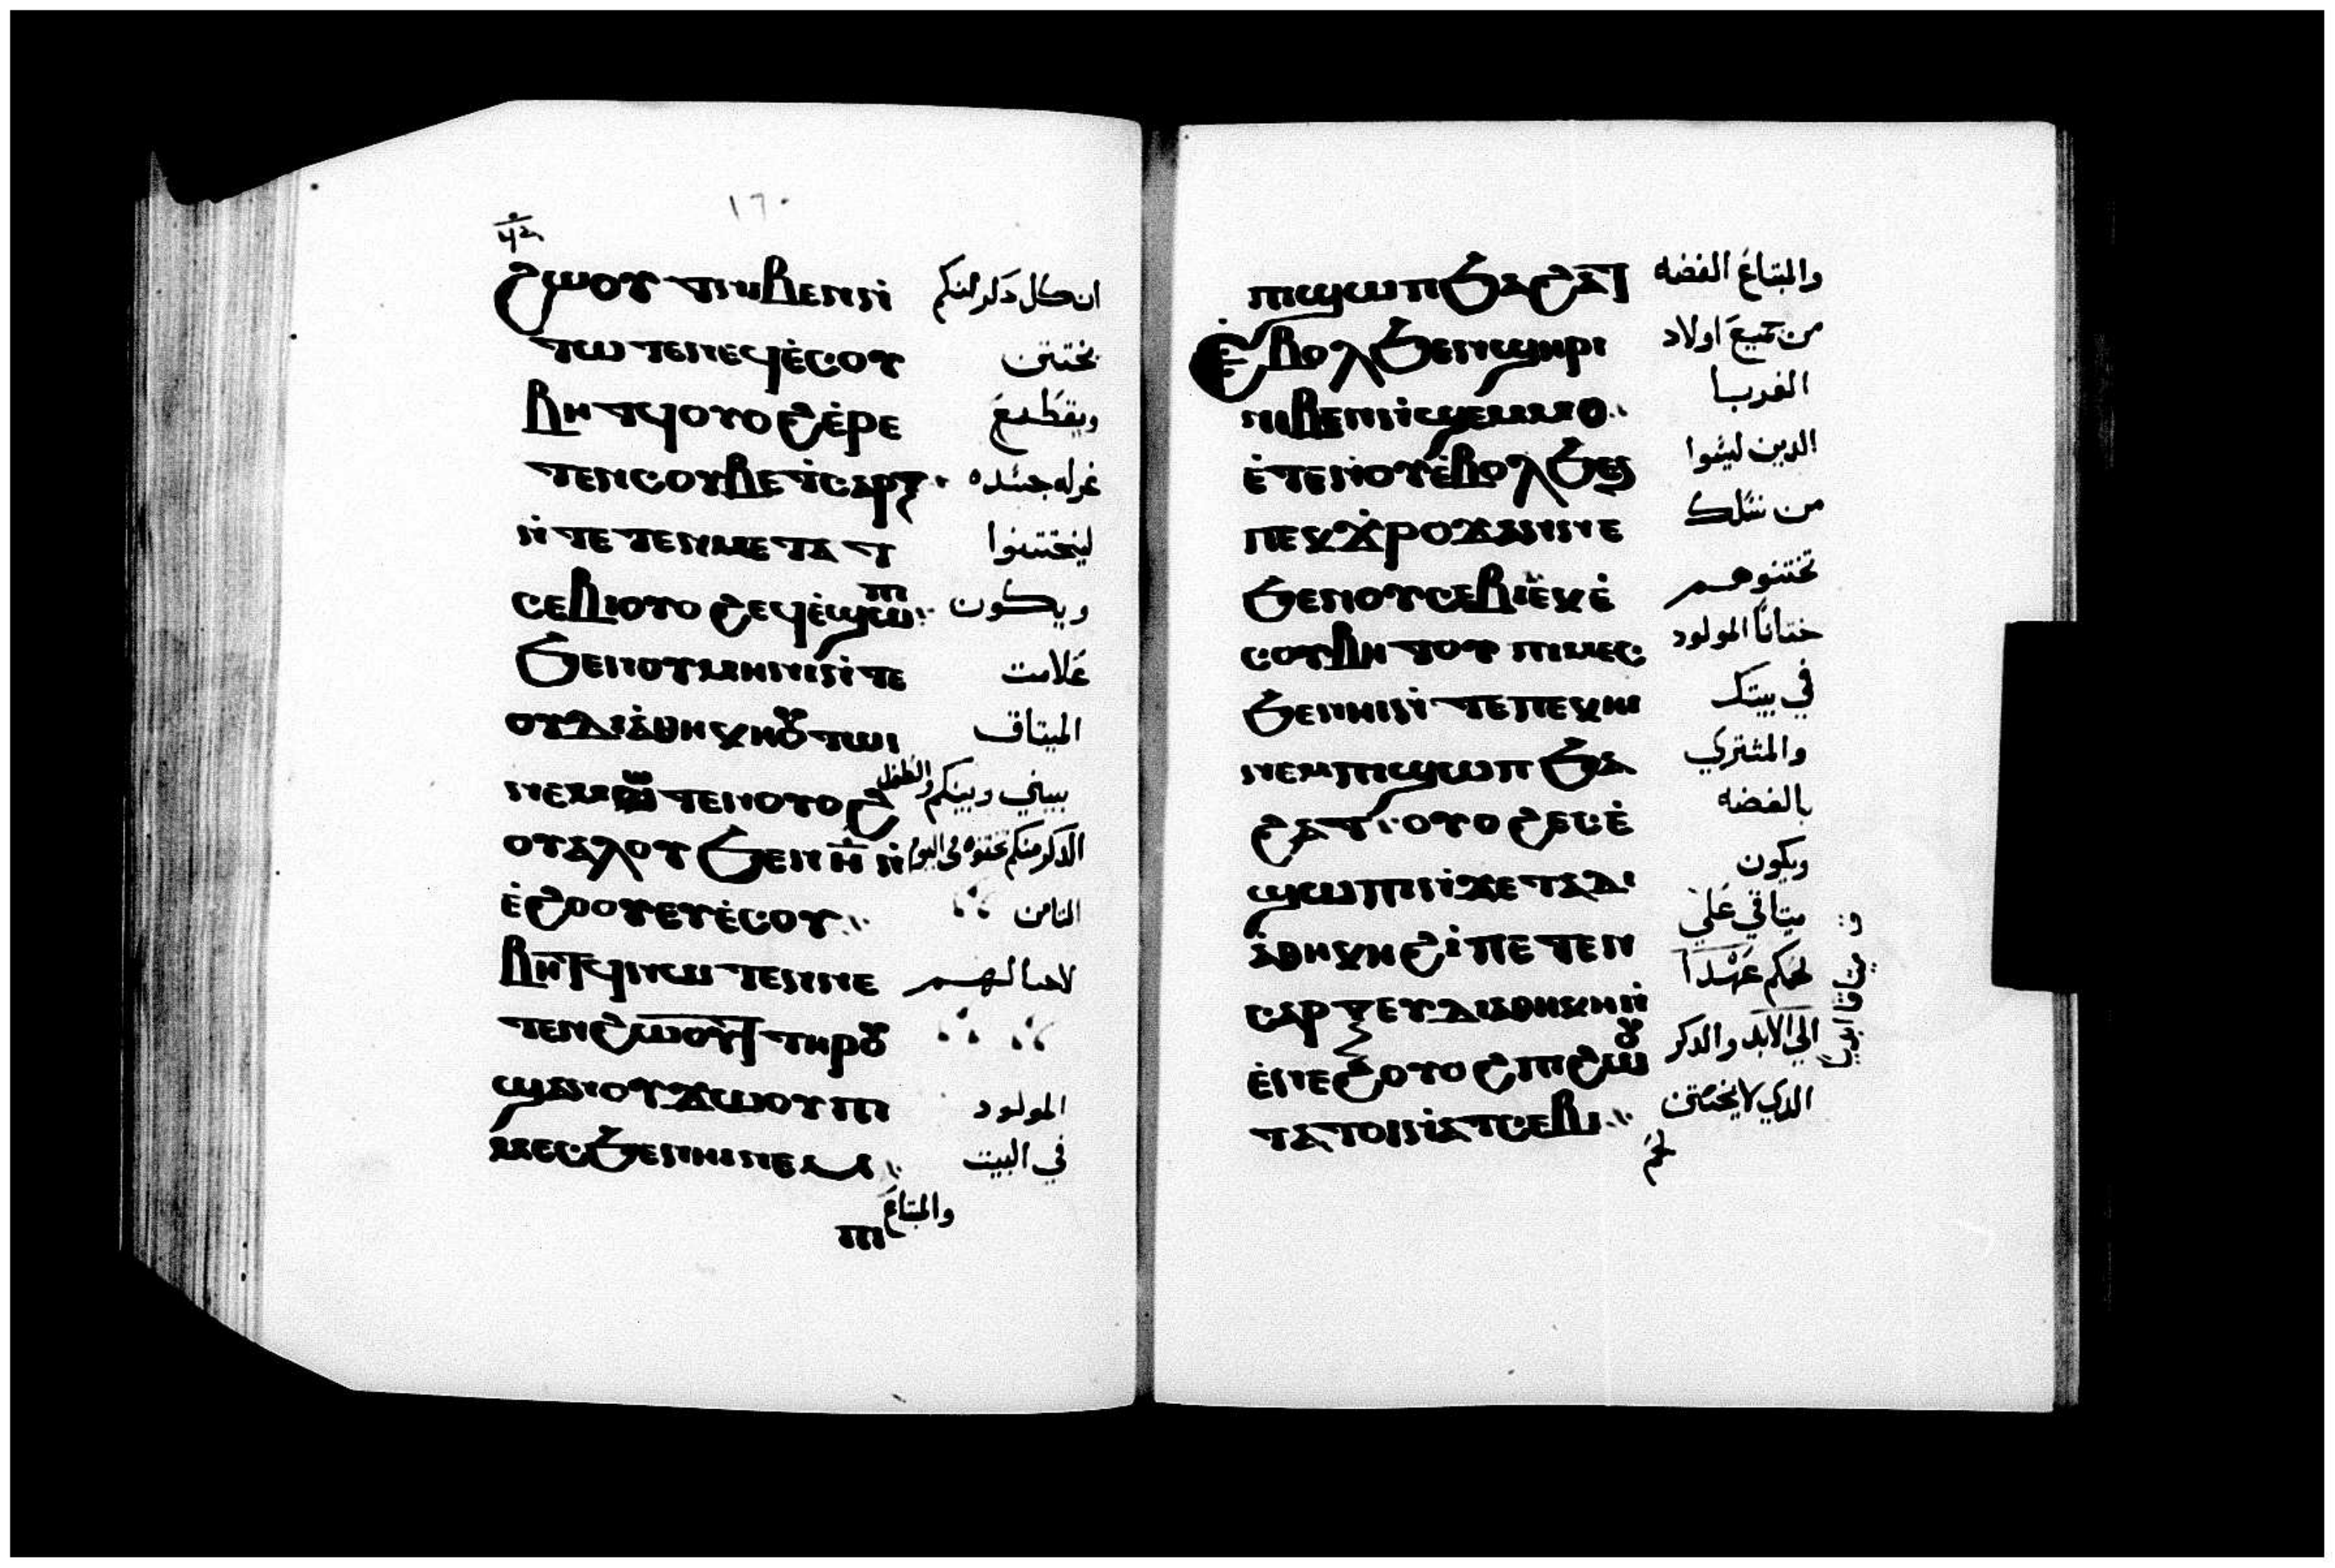 ١٦٠
ϩⲱⲟⲩⲧ ⲛⲓⲃⲉⲛ ⲛ̇ ان كل ذكر منكم
ⲧⲱⲧⲉⲛ ⲉϥⲉ̇ⲥⲟⲩ يختتن
ⲃⲏⲧϥ ⲟⲩⲟϩ ⲉ̇ⲣⲉ ويقطع
ⲧⲉⲛⲥⲟⲩⲃⲉ ⲧ̇ⲥⲁⲣⲝ غرله جسده
ⲛ̇ⲧⲉ ⲧⲉⲛⲙⲉⲧⲁⲧ ليختتنوا
ⲥⲉⲃⲓ ⲟⲩⲟϩ ⲉϥⲉ̇ϣⲱⲡⲓ ويكون
ϧⲉⲛ ⲟⲩⲙⲏⲓⲛⲓ ⲛ̇ⲧⲉ علامت
ⲟⲩⲇⲓⲁ̇ⲑⲏⲕⲏ ⲟⲩⲧⲱⲓ الميتاق
ⲛⲉⲙⲱⲧⲉⲛ ⲟⲩⲟϩ بيني وبينكم والطفل
ⲟⲩⲁⲗⲟⲩ ϧⲉⲛ ⲏ̅ ⲛ̇ الذكر منكم تختنوه في اليوم
ⲉ̇ϩⲟⲟⲩ ⲉⲩⲉ̇ⲥⲟⲩ التامن
ⲃⲏⲧϥ ⲛⲱⲧⲉⲛ ⲛⲉ لاجيالهم
ⲧⲉⲛϩⲱⲟⲩⲧ ⲧⲏⲣⲟⲩ
ϣⲁⲛⲟⲩϫⲱⲟⲩ ⲡⲓ المولود
ⲙⲉⲥ ϧⲉⲛ ⲏⲓ ⲛⲉⲙ في البيت
والمبتاع
ⲡⲓ
ⲡⲓϣⲱⲡ ϧⲁ ϩⲁⲧ والمبتاع الفضه
ⲉ̇ⲃⲟⲗ ϧⲉⲛ ϣⲏⲣⲓ من جميع اولاد
ⲛⲓⲃⲉⲛ ⲛ̇ϣⲉⲙⲙⲟ الغربا
ⲉ̇ⲧⲉ ⲛ̇ⲟⲩⲉ̇ⲃⲟⲗ ϧⲉⲛ الدين ليسوا
ⲡⲉⲕϫ̇ⲣⲟϫ ⲁⲛ ⲛⲉ من نسلك
ϧⲉⲛ ⲟⲩⲥⲉⲃⲓ ⲉⲕⲉ̇ تختنوهم
ⲥⲟⲩⲃⲏⲧⲟⲩ ⲡⲓⲙⲉⲥ ختانًا المولود
ϧⲉⲛ ⲏⲓ ⲛ̇ⲧⲉ ⲡⲉⲕⲏⲓ في بيتك
ⲛⲉⲙ ⲡⲓϣⲱⲡ ϧⲁ والمشتري
ϩⲁⲧ ⲟⲩⲟϩ ⲉⲥⲉ̇ بالفضه
ϣⲱⲡⲓ ⲛ̇ϫⲉ ⲧⲁⲇⲓ ويكون
ⲁ̇ⲑⲏⲕⲏ ϩⲓ ⲡⲉⲧⲉⲛ ميتاقي على
ⲥⲁⲣⲝ ⲉⲩⲇⲓⲁⲑⲏⲕⲏ ⲛ̇ لحمكم عهدًا
ⲉ̇ⲛⲉϩ ⲟⲩⲟϩ ⲡⲓϩⲱⲟⲩ الي الابد والذكر
ⲧ ⲁⲧⲟⲓ ⲛ̇ⲁⲧⲥⲉⲃⲓ الدي لا يختتن